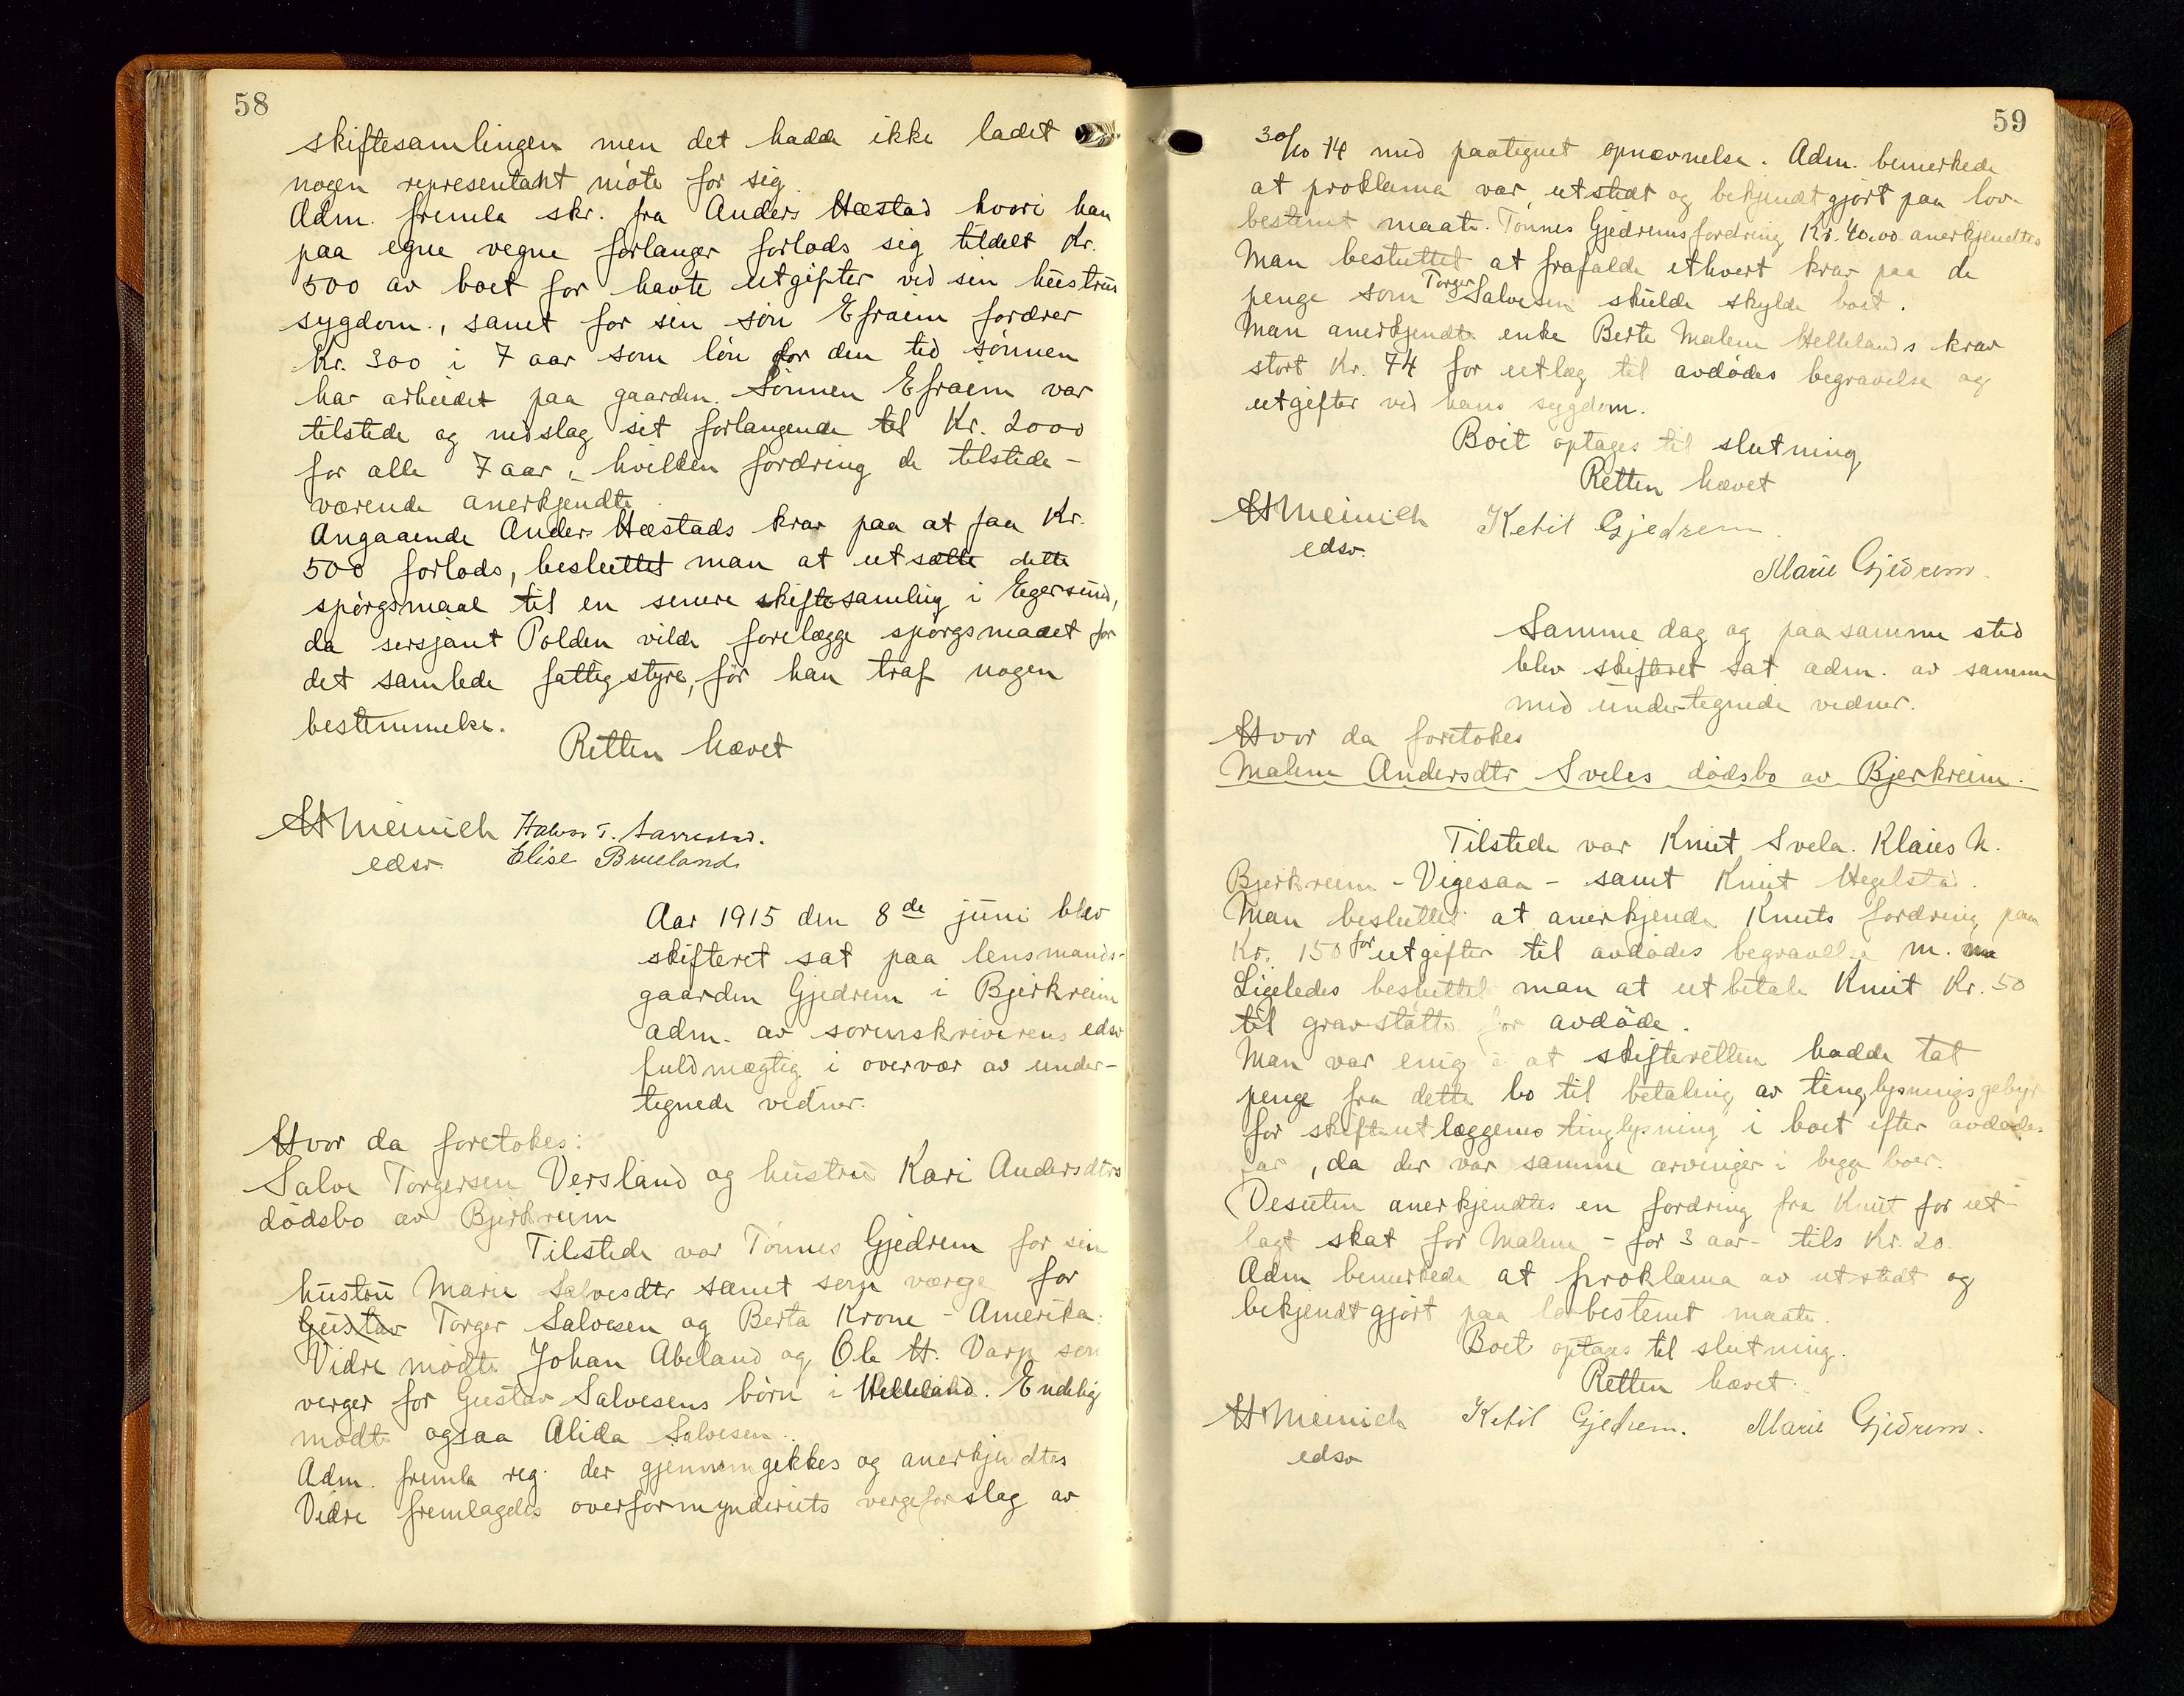 58
skiftesamlingen men det hadde ikke ladet
nogen representant möte for sig.
Adm. fremla skr. fra Anders Hæstad hvori han
paa egne vegne forlanger forlods sig tildelt Kr.
500 av boet for havte utgifter ved sin hustrus
sygdom, samt for sin sön Efraim fordrer
Kr. 300 i 7 aar som lön for den tid sönnen
har arbeidet paa gaarden. Sönnen Efraim var
tilstede og nedslag sit forlangende til Kr. 2000
for alle 7 aar, hvilken fordring de tilstede-
værende anerkjendte
Angaaende Anders Hæstads krav paa at faa Kr.
500 forlods, besluttet man at utsætte dette
spörgsmaal til en senere skiftesamling i Egersund,
da sersjant Polden vilde forelægge spörgsmaalet for
det samlede fattigstyre, för han traf nogen
bestemmelse.
Retten hævet
Meinich Halvor T.
edsv. Elise Brueland
Aar 1915 den 8de juni blev
skifteret sat paa lensmands-
gaarden Gjedrem i Bjerkreim
adm. av sorenskriverens edsv
fuldmægtig i overvær av under-
tegnede vidner.
Hvor da foretokes:
Salve Torgersen Versland og hustru Kari Andersdtrs
dödsbo av Bjerkreim
Tilstede var Tönnes Gjedrem for sin
hustru Marie Salvesdtr samt som værge for
Gustav Torger Salvesen og Berta Krone - Amerika.
Vidre mödte Johan Abeland og Ole H. Varp som
verger for Gustav Salvesens börn i Helleland. Endelig
mödte ogsaa Alida Salvesen.
Adm. fremla reg. der gjennemgikkes og anerkjendtes
Vidre fremlagdes overformynderiets vergeforslag av
59
30/10 14 med paategnet opnævnelse. Adm. bemerkede
at proklama var utstedt og bekjendtgjort paa lov-
bestemt maate. Tönnes Gjedrems fordring Kr. 40.00 anerkjendtes
Man besluttet at frafalde ethvert krav paa de
penge som Torger Salvesen skulde skylde boet.
Man anerkjendte enke Berte Malene Hellelands krav
stort Kr. 74 for utlæg til avdödes begravelse og
utgifter ved hans sygdom.
Boet optages til slutning,
Retten hævet
Meinich Ketil Gjedrem.
edsv. Marie Gjedrem.
Samme dag og paa samme sted
blev skifteret sat adm. av samme
med undertegnede vidner.
Hvor da foretokes
Malene Andersdtr Sveles dödsbo av Bjerkreim.
Tilstede var Knut Svela. Klaus N.
Bjerkreim - Vigesaa - samt Knut Hegelstad.
Man besluttet at anerkjende Knuts fordring paa
Kr. 150 for utgifter til avdödes begravelse m. m
Ligeledes besluttet man at utbetale Knut Kr. 50
til gravstötte for avdöde.
Man var enig i at skifteretten hadde tat
penge fra dette bo til betaling av tinglysningsgebyr
for skifteutlæggenes tinglysning i boet efter avdödes
far, da der var samme arvinger i begge boer.
Desuten anerkjendtes en fordring fra Knut for ut-
lagt skat for Malene - for 3 aar - tils Kr. 20.
Adm bemerkede at proklama av utstedt og
bekjendtgjört paa lovbestemt maate.
Boet optages til slutning.
Retten hævet.
Meinich Ketil Gjedrem. Marie Gjedrem.
edsv